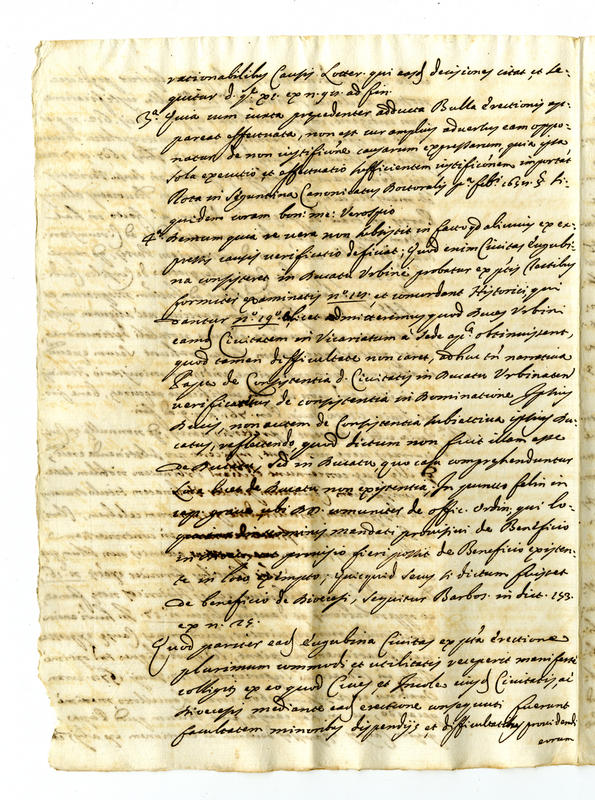 rationabilibus causis Lotter. qui easd decisiones citat, et se-
quitur d. q. xi. ex n. 912. ad fin
3.a Quia cum iuxta precedenter adducta Bulla Erectionis ap-
pareat effectuata, non est cur amplius adversus eam oppo-
natur de non iustificne causarum expressarum, quia ipsa
sola executio et effectuatio sufficientem iustificonem importat
Rota in Seguntina Canonicatus Doctoralis
quidem coram bon: me: Verospio
4.a Demum quia re vera non subsistit in facto qd alicuius ex ex-
pressis causis verificatio deficiat; Quod enim Civitas Eugubi-
na consisteret in Ducatu Urbini probatur ex ptis Testibus
formiter examinatis n.o 14. et concordant Historici qui
dantur n.o 19. licet admitteremus quod Duces Urbini
eamd Civitatem in Vicariatum a Sede apca obtinuissent,
quod tamen difficultate non caret, adhuc tn narrativa
Papae de Consistentia d. Civitatis in Ducatu Urbinaten
verificatur de consistentia in Dominatione Ipsius
Ducis, non autem de Consistentia subiectiva ipsius Du-
catus, reflectendo, quod dictum non fuit illam esse
de Ducatu, sed in Ducatu quo casu comprehenduntur
Loca licet de Ducatu non existentia, In puncto Felin in
cap. ubi DD. comuniter de offic. Ordin. qui lo-
mandati provisivi de Beneficio
in provisio fieri possit de Beneficio existen-
te in loco exempto; Quicquid secus si dictum fuisset
de beneficio de Diocesi, sequitur Barbos. in dict. 153.
ex n. 125.
Quod pariter ead Eugubina Civitas ex pta Erectione
plurimum commodi et utilitatis receperit manifeste
colligit ex eo quod Cives, et Incole eiusd Civitatis, ac
Diocesis mediante ead erectione consequuti fuerunt
facultatem minoribus dispendijs et difficultatibus providendi
eorum